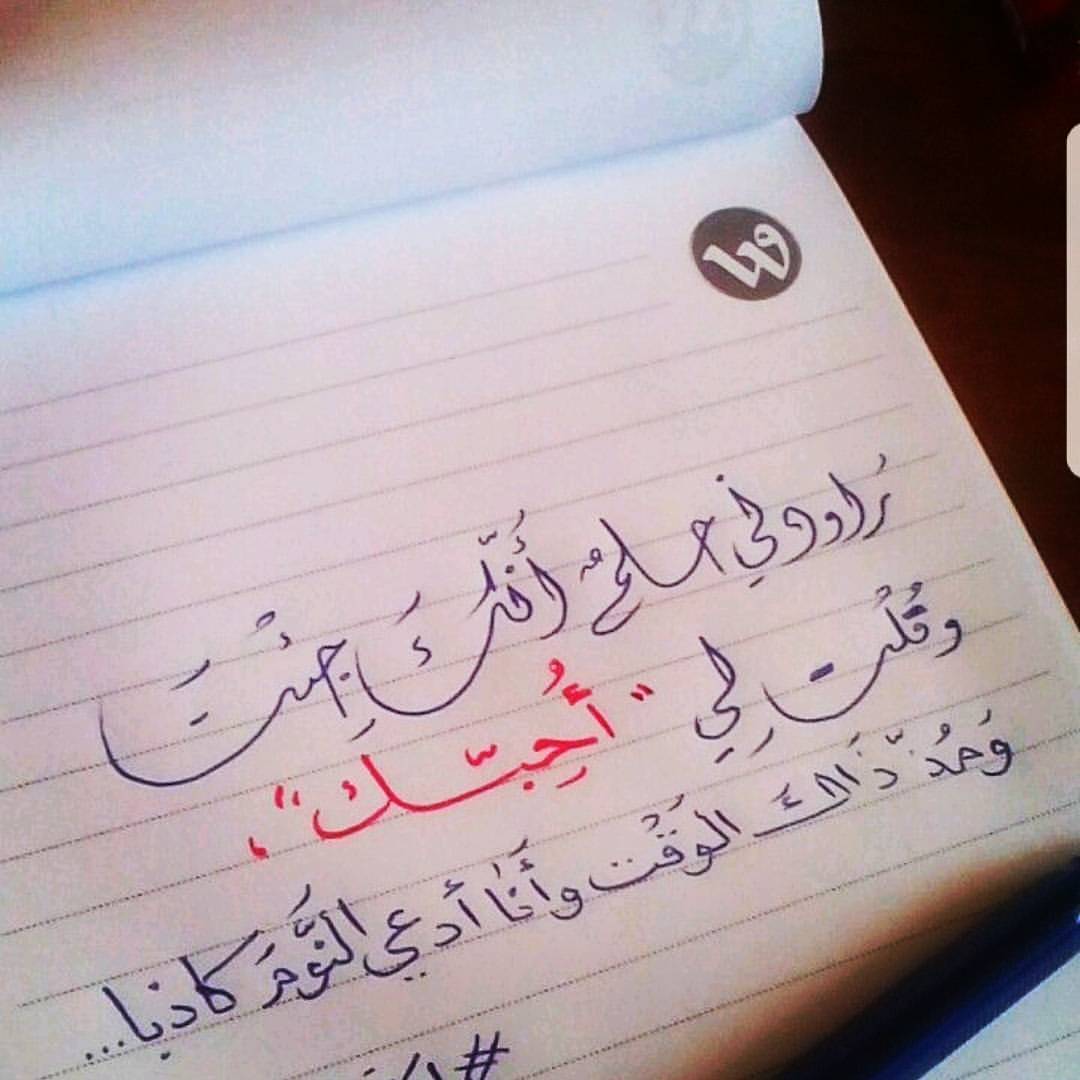 راودني حلمٌ أنّكَ جئْتَ
وقُلْت لي
"أُحِبّك"،
وَمُنذُ ذَالكَ الوَقْت وأَنَا أدعي النَّومَ كاذبا...
#